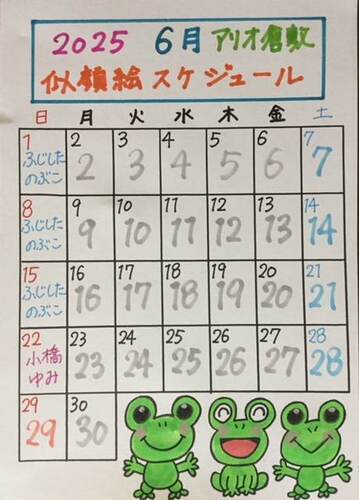 2025 6月 アリオ倉敷
似顔絵スケジュール
日 月 火 水 木 金 土
1 2 3 4 5 6 7
ふじした 2 3 4 5 6 7
のぶこ
8 9 10 11 12 13 14
ふじした 9 10 11 12 13 14
のぶこ
15 16 17 18 19 20 21
ふじした 16 17 18 19 20 21
のぶこ
22 23 24 25 26 27 28
小橋 23 24 25 26 27 28
ゆみ
29 30
29 30